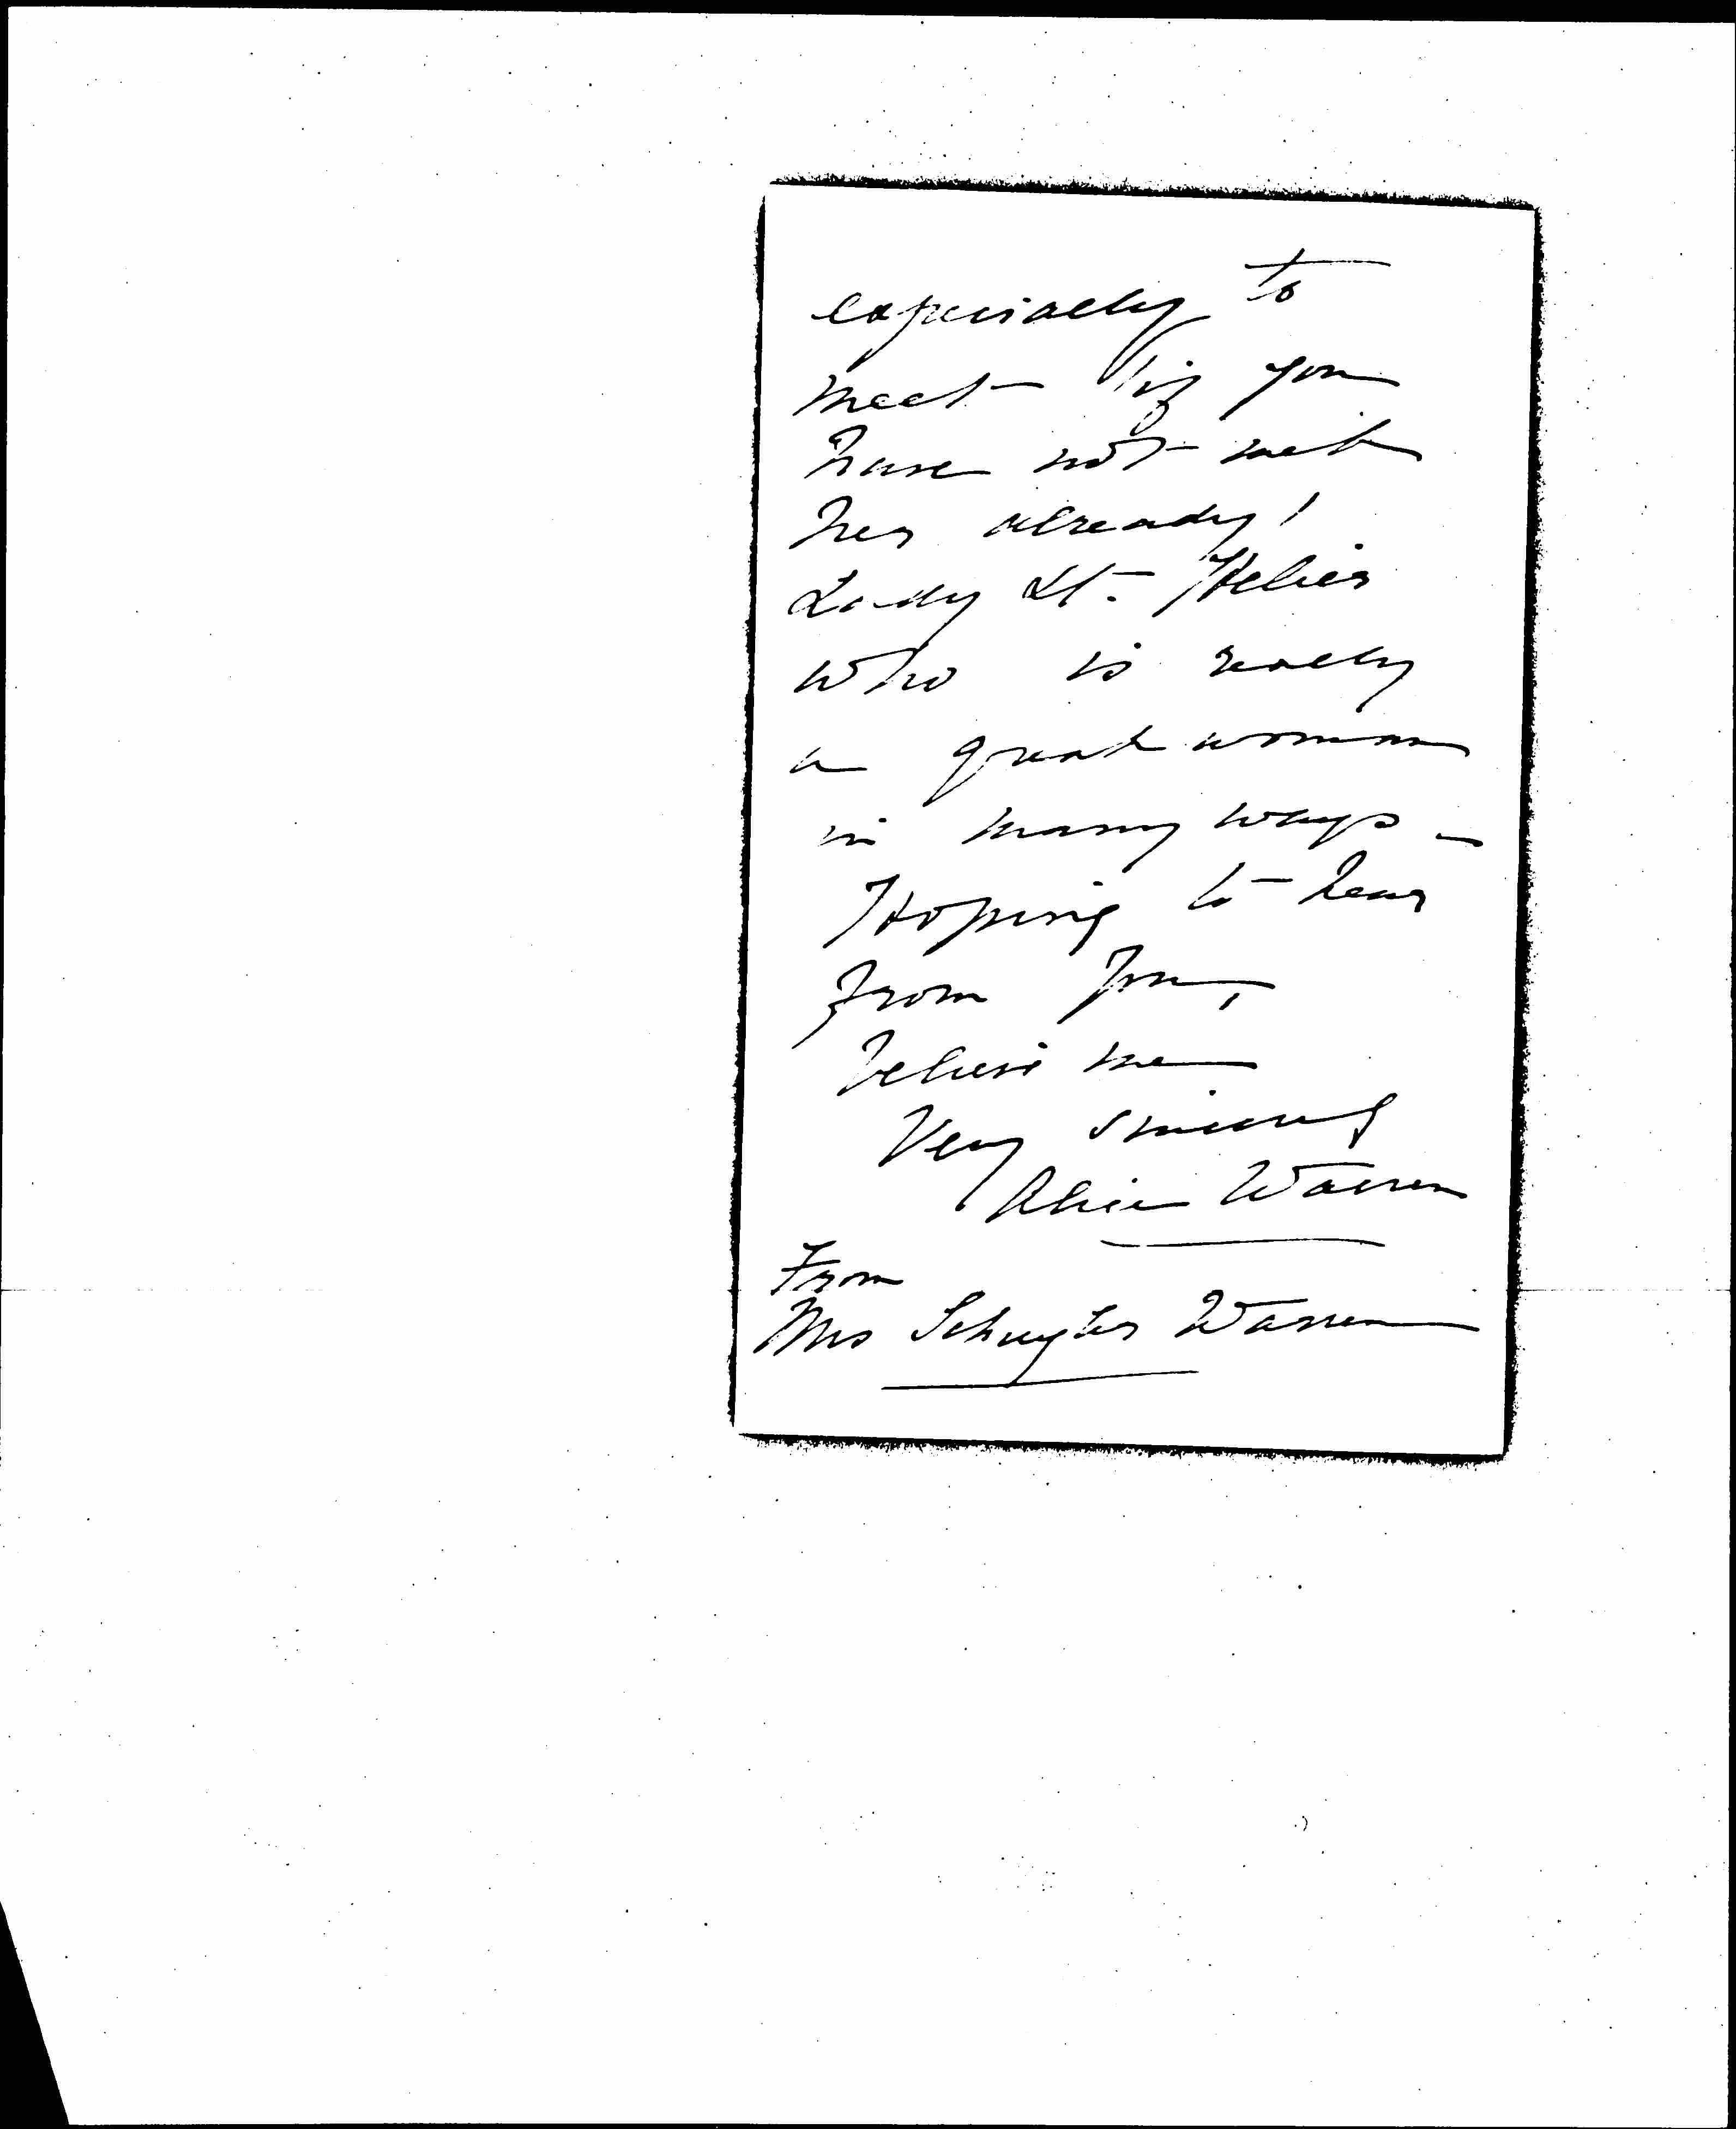 especially to
meet if you
have not met
her already!
Lady St. Helier
who is really
a great woman
in many ways -
Hoping to hear
from you,
believe me
Very sincerely
Alice Warren
From
Mrs Schuyler Warren